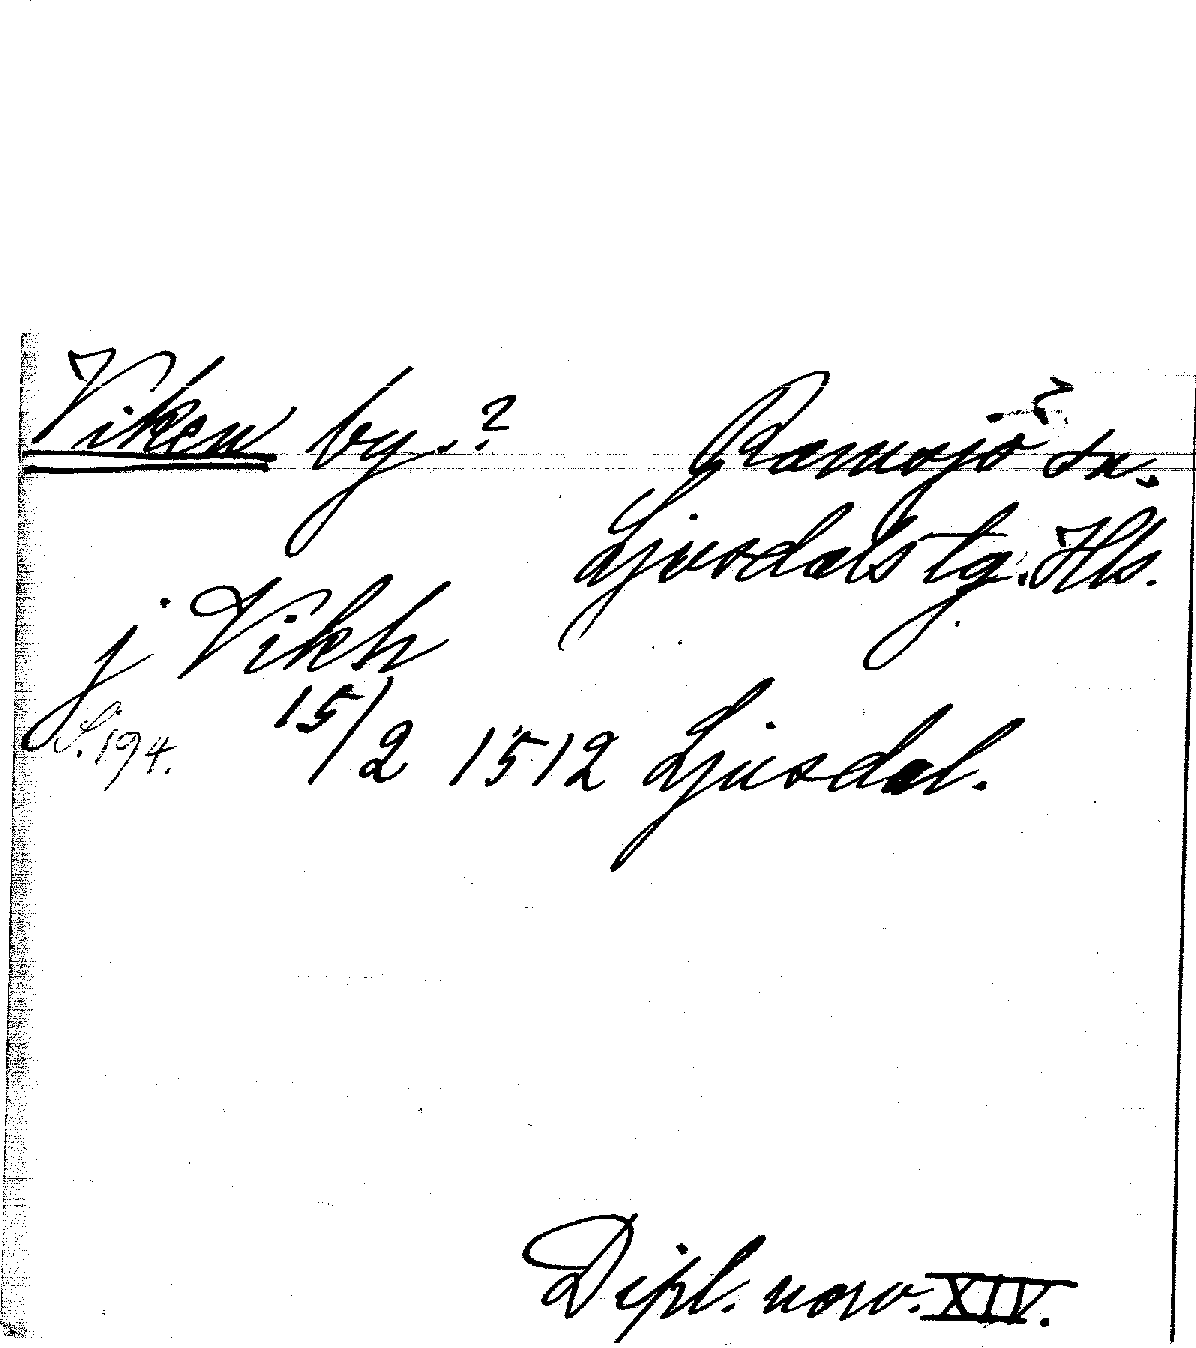 Viken by.? Ramsjö? sn.
Ljusdals tg. Hls.
j Vikh
S. 194. 15/2 1512 Ljusdal.
Dipl. norv. XIV.